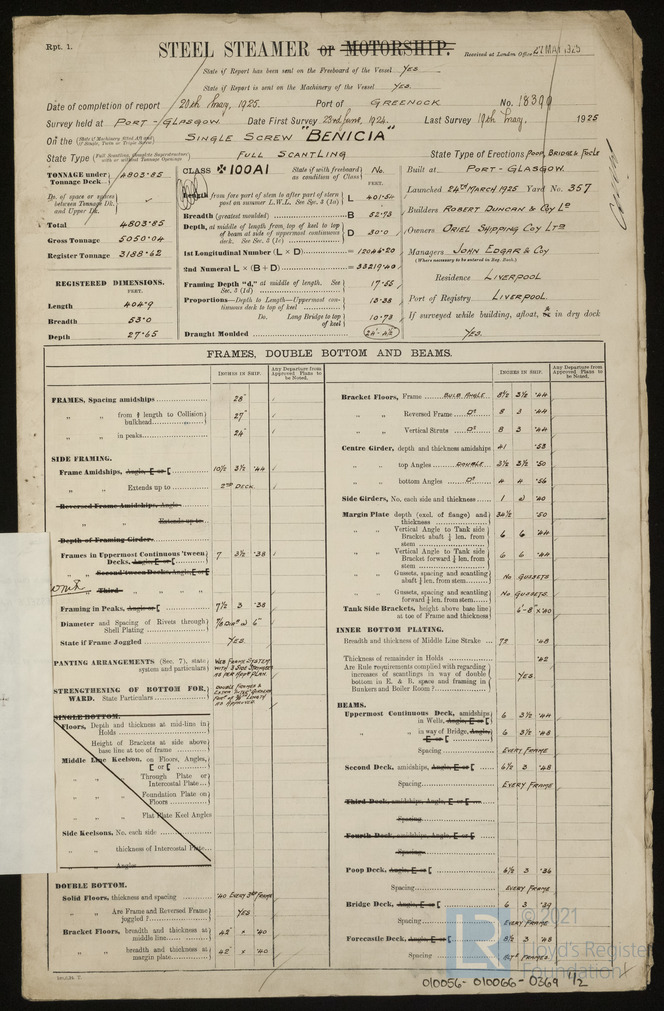 Rpt. 1.
STEEL STEAMER or MOTORSHIP.
Received at London Office 22 MAY 1925
State if Report has been sent on the Freeboard of the Vessel YES
State if Report is sent on the Machinery of the Vessel YES.
Date of completion of report 20th May, 1925. Port of GREENOCK No. 18390
Survey held at PORT-GLASGOW Date First Survey 23rd June, 1924. Last Survey 19th May, 1925
On the SINGLE SCREW "BENICIA"
State Type FULL SCANTLING State Type of Erections POOP, BRIDGE & FOCLE
TONNAGE under Tonnage Deck 4803.85
Do. of space or spaces between Tonnage Dk. and Upper Dk.
Total 4803.85
Gross Tonnage 5050.04
Register Tonnage 3188.62
REGISTERED DIMENSIONS.
FEET.
Length 404.9
Breadth 53.0
Depth 27.65
CLASS ✠ 100A1 State if with freeboard as condition of Class No.
FEET.
Length from fore part of stem to after part of stern post on summer L.W.L. See Sec. 3 (1a) L 401.54
Breadth (greatest moulded) B 52.73
Depth, at middle of length from top of keel to top of beam at side of uppermost continuous deck. See Sec. 3 (1c) D 30.0
1st Longitudinal Number (L × D) = 12046.20
2nd Numeral L × (B + D) = 33219.40
Framing Depth "d," at middle of length. See Sec. 3 (1d) 17.55
Proportions—Depth to Length—Uppermost continuous deck to top of keel 13.38
Do. Long Bridge to top of keel 10.73
Draught Moulded 24'-4½"
Built at PORT-GLASGOW.
Launched 24TH MARCH 1925 Yard No. 357
Builders ROBERT DUNCAN & COY LD
Owners ORIEL SHIPPING COY LTD
Managers JOHN EDGAR & COY
(Where necessary to be entered in Reg. Book.)
Residence LIVERPOOL
Port of Registry LIVERPOOL
If surveyed while building, afloat, & in dry dock
YES.
FRAMES, DOUBLE BOTTOM AND BEAMS.
INCHES IN SHIP. Any Departure from Approved Plans to be Noted.
FRAMES, Spacing amidships 28"
" " from ⅗ length to Collision bulkhead 27"
" " in peaks 24"
SIDE FRAMING.
Frame Amidships, Angle, E or [ 10½ 3½ .44
" " Extends up to 2ND DECK
Reversed Frame Amidships, Angle
" " Extends up to
Depth of Framing Girder
Frames in Uppermost Continuous 'tween Decks, Angle, E or [ 7 3½ .38
" " Second 'tween Decks, Angle, E or [
" " Third " "
Framing in Peaks, Angle or [ 7½ 3 .38
Diameter and Spacing of Rivets through Shell Plating 7/8 DIAR 6"
State if Frame Joggled YES.
PANTING ARRANGEMENTS (Sec. 7), state system and particulars WEB FRAME SYSTEM WITH 3 SIDE STRINGERS AS PER APPD PLAN
STRENGTHENING OF BOTTOM FORWARD. State Particulars
SINGLE BOTTOM.
Floors, Depth and thickness at mid-line in Holds
Height of Brackets at side above base line at toe of frame
Middle Line Keelson, on Floors, Angles, E or [
" " Through Plate or Intercostal Plate
" " Foundation Plate on Floors
" " Flat Plate Keel Angles
Side Keelsons, No. each side
" " thickness of Intercostal Plate
" " Angles
DOUBLE BOTTOM.
Solid Floors, thickness and spacing .40 EVERY 3RD FRAME
" " Are Frame and Reversed Frame joggled? YES
Bracket Floors, breadth and thickness at middle line 42" × .40
" " breadth and thickness at margin plate 42" × .40
INCHES IN SHIP. Any Departure from Approved Plans to be Noted.
Bracket Floors, Frame BULB ANGLE 8½ 3½ .44
" " Reversed Frame Do. 8 3 .44
" " Vertical Struts Do. 8 3 .44
Centre Girder, depth and thickness amidships 41 .53
" " top Angles DOUBLE 3½ 3½ .50
" " bottom Angles Do. 4 4 .56
Side Girders, No. each side and thickness 1 @ .40
Margin Plate depth (excl. of flange) and thickness 34½ .50
" " Vertical Angle to Tank side Bracket abaft ¼ len. from stem 6 6 .44
" " Vertical Angle to Tank side Bracket forward ¼ len. from stem 6 6 .44
" " Gussets, spacing and scantling abaft ¼ len. from stem NO GUSSETS
" " Gussets, spacing and scantling forward ¼ len. from stem NO GUSSETS.
Tank Side Brackets, height above base line at toe of Frame and thickness 6'-8" × .40
INNER BOTTOM PLATING.
Breadth and thickness of Middle Line Strake 72 .48
Thickness of remainder in Holds .42
Are Rule requirements complied with regarding increases of scantlings in way of double bottom in E. & B. space and framing in Bunkers and Boiler Room? YES.
BEAMS.
Uppermost Continuous Deck, amidships in Wells, Angle, E or [ 6 3½ .44
" " in way of Bridge, Angle, E or [ 6 3½ .48
Spacing EVERY FRAME
Second Deck, amidships, Angle, E or [ 6½ 3 .48
Spacing EVERY FRAME
Third Deck, amidships, Angle, E or [
Spacing
Fourth Deck, amidships, Angle, E or [
Spacing
Poop Deck, Angle, E or [ 6½ 3 .36
Spacing EVERY FRAME
Bridge Deck, Angle, E or [ 6 3 .39
Spacing EVERY FRAME
Forecastle Deck, Angle, E or [ 8½ 3 .48
Spacing
LR © 2021
Lloyd's Register
Foundation
010056-010066-0369 1/2